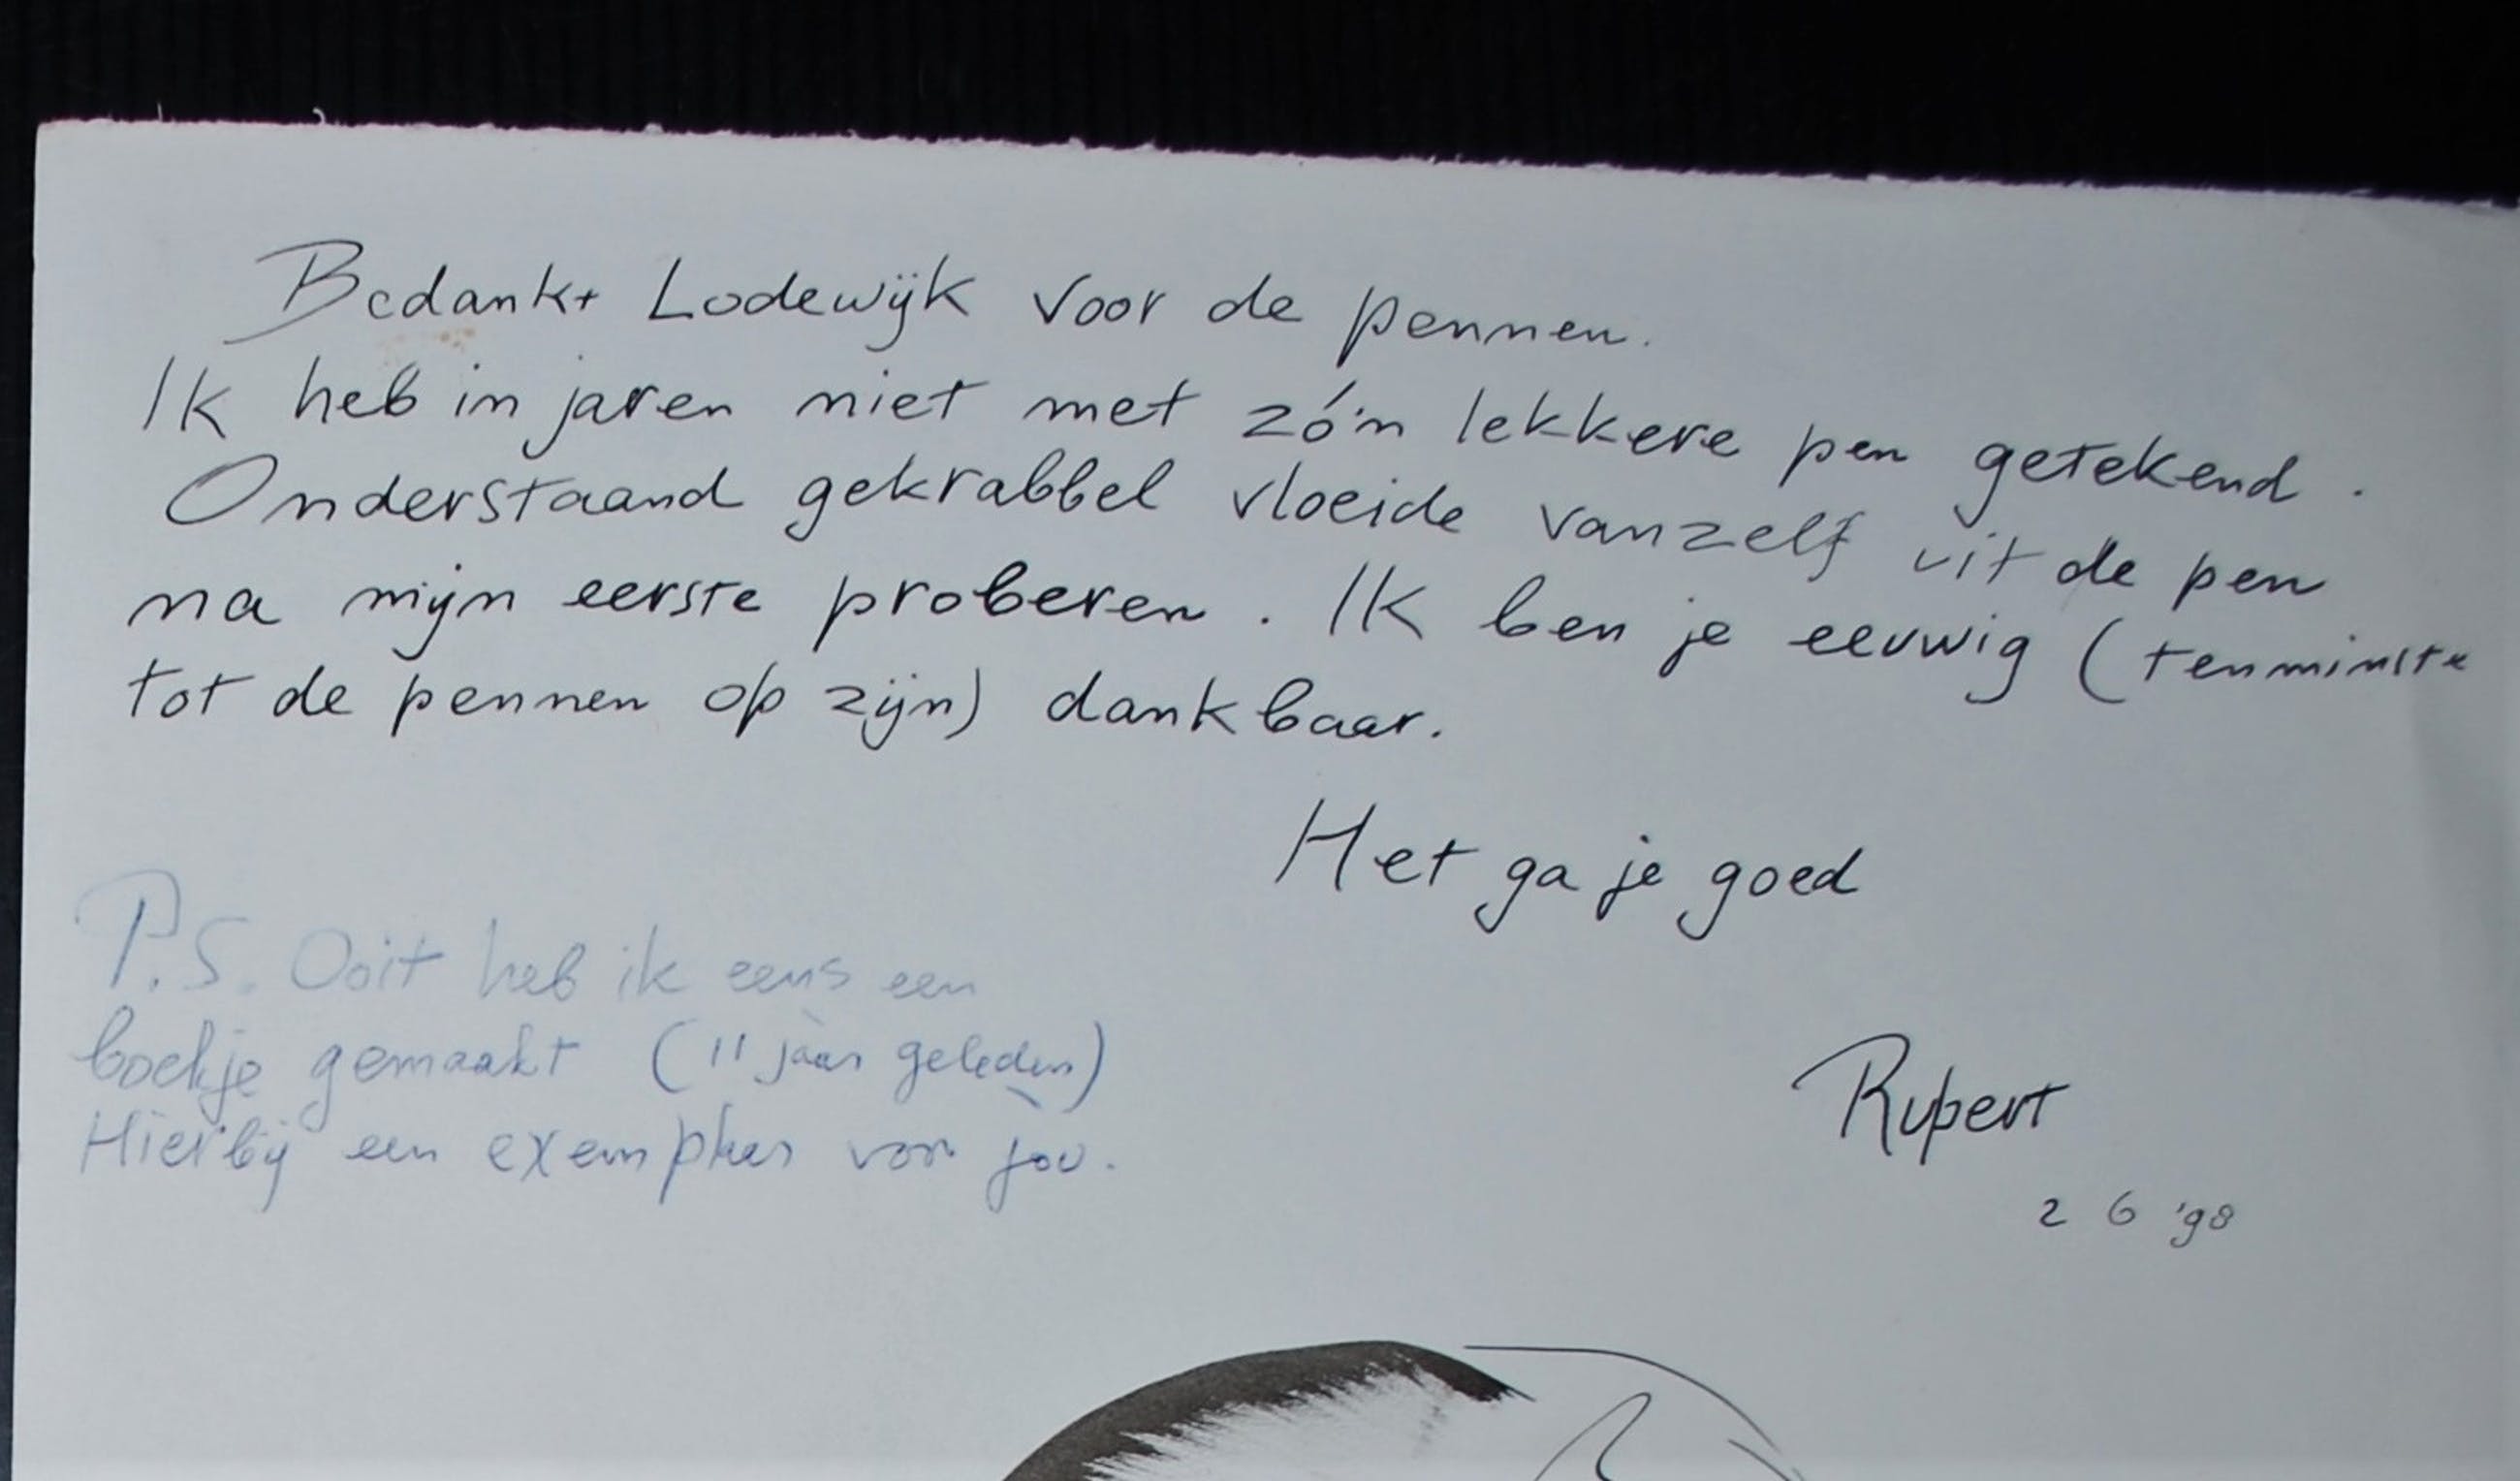 Bedankt Lodewijk voor de pennen.
Ik heb in jaren niet met zó'n lekkere pen getekend.
Onderstaand gekrabbel vloeide vanzelf uit de pen
na mijn eerste proberen. Ik ben je eeuwig (tenminste
tot de pennen op zijn) dankbaar.
Het ga je goed
P.S. Ooit heb ik eens een
boekje gemaakt (11 jaar geleden)
Hierbij een exemplaar voor jou.
Rupert
2 6 '98